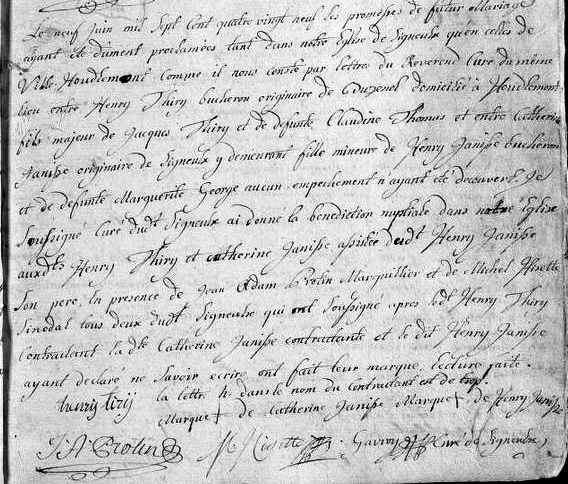 Le neuf Juin mil Sept Cent quatre vingt neuf les promesses de futur Mariage
ayant été düment proclamées tant dans notre Eglise de Signeulx qu'en celles de
Ville-Houdlemont comme il nous conste par lettres du Reverend Curé du même
lieu entre Henry Thiry bucheron originaire de domicilié à Houdlemont
fils majeur de Jacques Thiry et de defunte Claudine Thomas et entre Catherine
Janisse originaire de Signeulx y demeurant fille mineure de Henry Janisse bucheron
et de defunte Marguerite George aucun empechement n'ayant été decouvert. Je
Soussigné Curé dudt Signeulx ai donné la benediction nuptiale dans notre Eglise
auxdts Henry Thiry et Catherine Janisse assistée dudt Henry Janisse
Son pere, En presence de Jean Adam Prolin Marguillier et de Michel
Sinodal tous deux dudt Signeulx qui ont soussigné apres ledt Henry Thiry
Contractant la dte Catherine Janisse contractante et le dit Henry Janisse
ayant declaré ne Savoir ecrire ont fait leur marque. Lecture faite.
la lettre h dans le nom du Contractant est de trop.
henry tiry
Marque + de Catherine Janisse Marque + de Henry Janisse
J A Prolin M Gavroy Curé de Signeulx